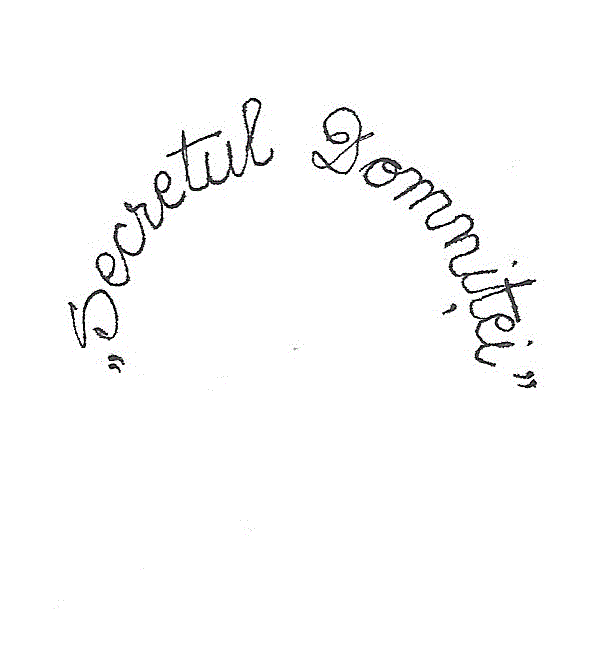 „Secretul Domniței”